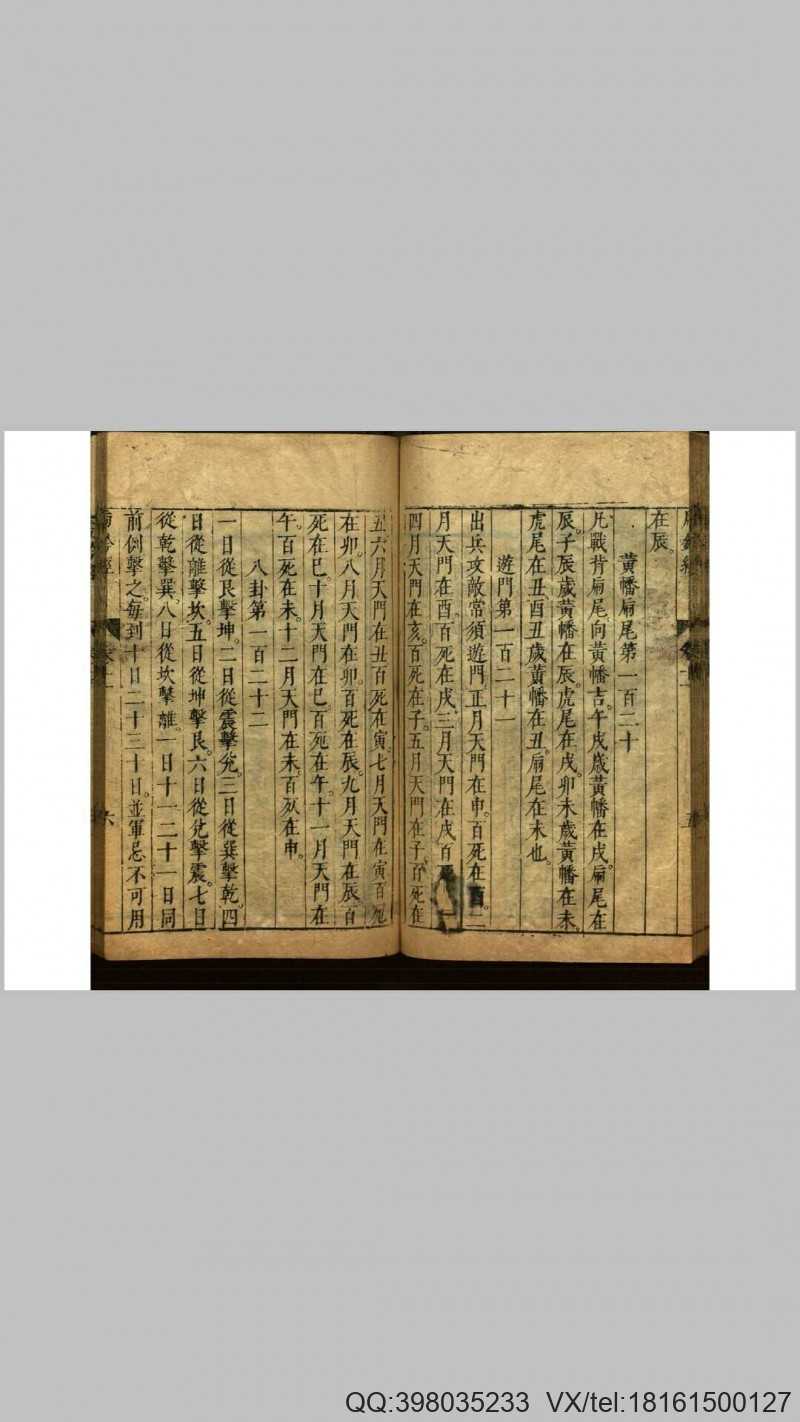 在辰。
黃幡扁尾第一百二十
凡戰背扁尾向黃幡吉。午戌歲黃幡在戌。扁尾在
辰。子辰歲黃幡在辰。虎尾在戌。卯未歲黃幡在未。
虎尾在丑酉丑歲黃幡在丑。扁尾在未也。
遊門第一百二十一
出兵攻敵當須遊門。正月天門在申。百死在酉。二
月天門在酉。百死在戌。三月天門在戌百
四月天門在亥。百死在子。五月天門在子。百死在
丑六月天門在丑百死在寅。七月天門在寅百死
在卯。八月天門在卯。百死在辰。九月天門在辰。百
死在巳。十月天門在巳。百死在午。十一月天門在
午。百死在未。十二月天門在未。百死在申。
八卦第一百二十二
一日從艮擊坤。二日從震擊兌。三日從巽擊乾。四
日從離擊坎。五日從坤擊艮。六日從兌擊震。七日
從乾擊巽。八日從坎擊離。一日十一二十一日同
前倒擊之。每到十日二十三十日。並軍忌不可用
五
六
QQ:398035233 VX/tel:18161500127